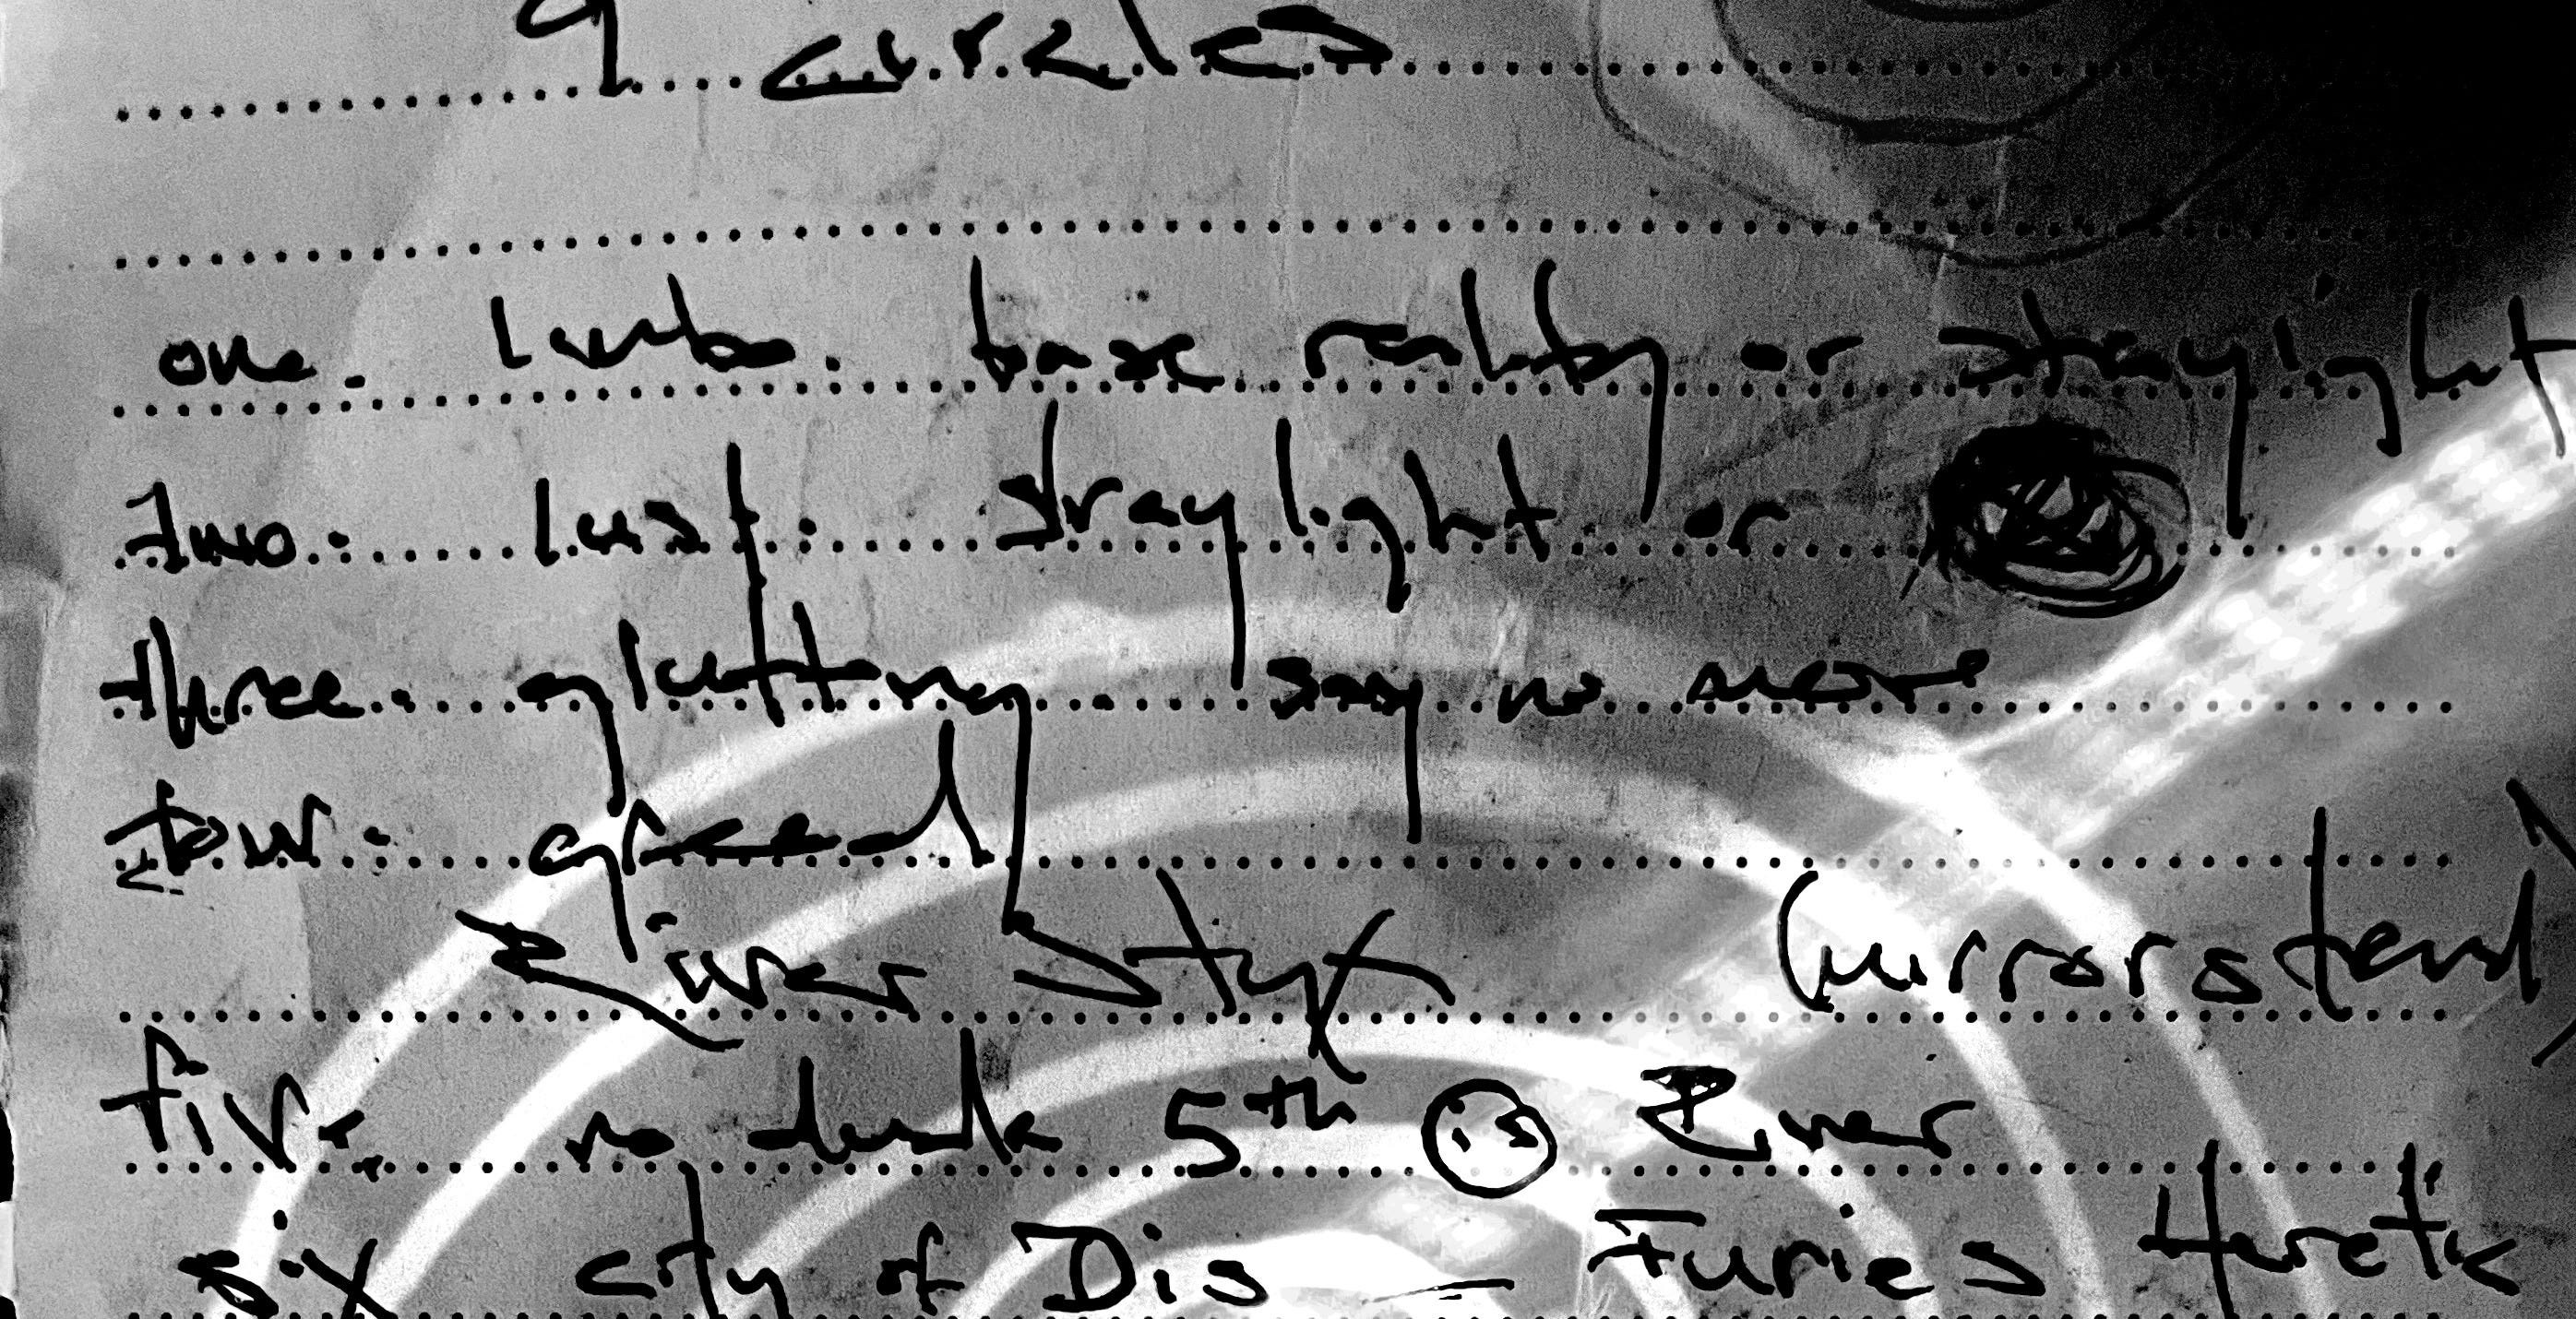 9 circles
one. limbo. base reality or straylight
two. lust. straylight or
three. gluttony. say no more
four. greed
River Styx (mirrorstand)
five. no dusk 5th is River
six city of Dis – Furies Heretic